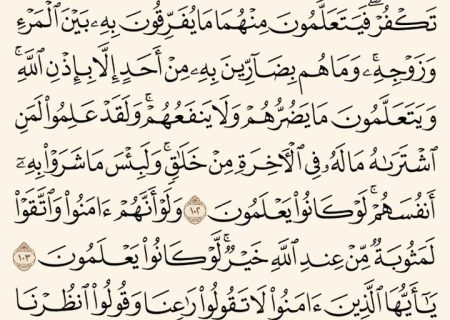 تَكْفُرْ ۖ فَيَتَعَلَّمُونَ مِنْهُمَا مَا يُفَرِّقُونَ بِهِۦ بَيْنَ ٱلْمَرْءِ
وَزَوْجِهِۦ ۚ وَمَا هُم بِضَآرِّينَ بِهِۦ مِنْ أَحَدٍ إِلَّا بِإِذْنِ ٱللَّهِ ۚ
وَيَتَعَلَّمُونَ مَا يَضُرُّهُمْ وَلَا يَنفَعُهُمْ ۚ وَلَقَدْ عَلِمُوا۟ لَمَنِ
ٱشْتَرَىٰهُ مَا لَهُۥ فِى ٱلْـَٔاخِرَةِ مِنْ خَلَـٰقٍ ۚ وَلَبِئْسَ مَا شَرَوْا۟ بِهِۦٓ
أَنفُسَهُمْ ۚ لَوْ كَانُوا۟ يَعْلَمُونَ ١٠٢ وَلَوْ أَنَّهُمْ ءَامَنُوا۟ وَٱتَّقَوْا۟
لَمَثُوبَةٌ مِّنْ عِندِ ٱللَّهِ خَيْرٌ ۖ لَّوْ كَانُوا۟ يَعْلَمُونَ ١٠٣
يَـٰٓأَيُّهَا ٱلَّذِينَ ءَامَنُوا۟ لَا تَقُولُوا۟ رَٰعِنَا وَقُولُوا۟ ٱنظُرْنَا